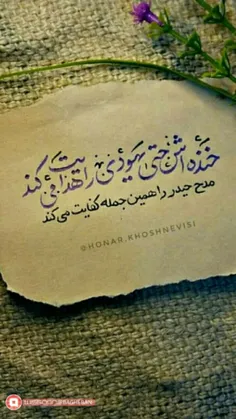 خنده اش حتی یهودی را هدایت می کند
مدح حیدر را همین جمله کفایت می کند
@HONAR_KHOSHNEVISI